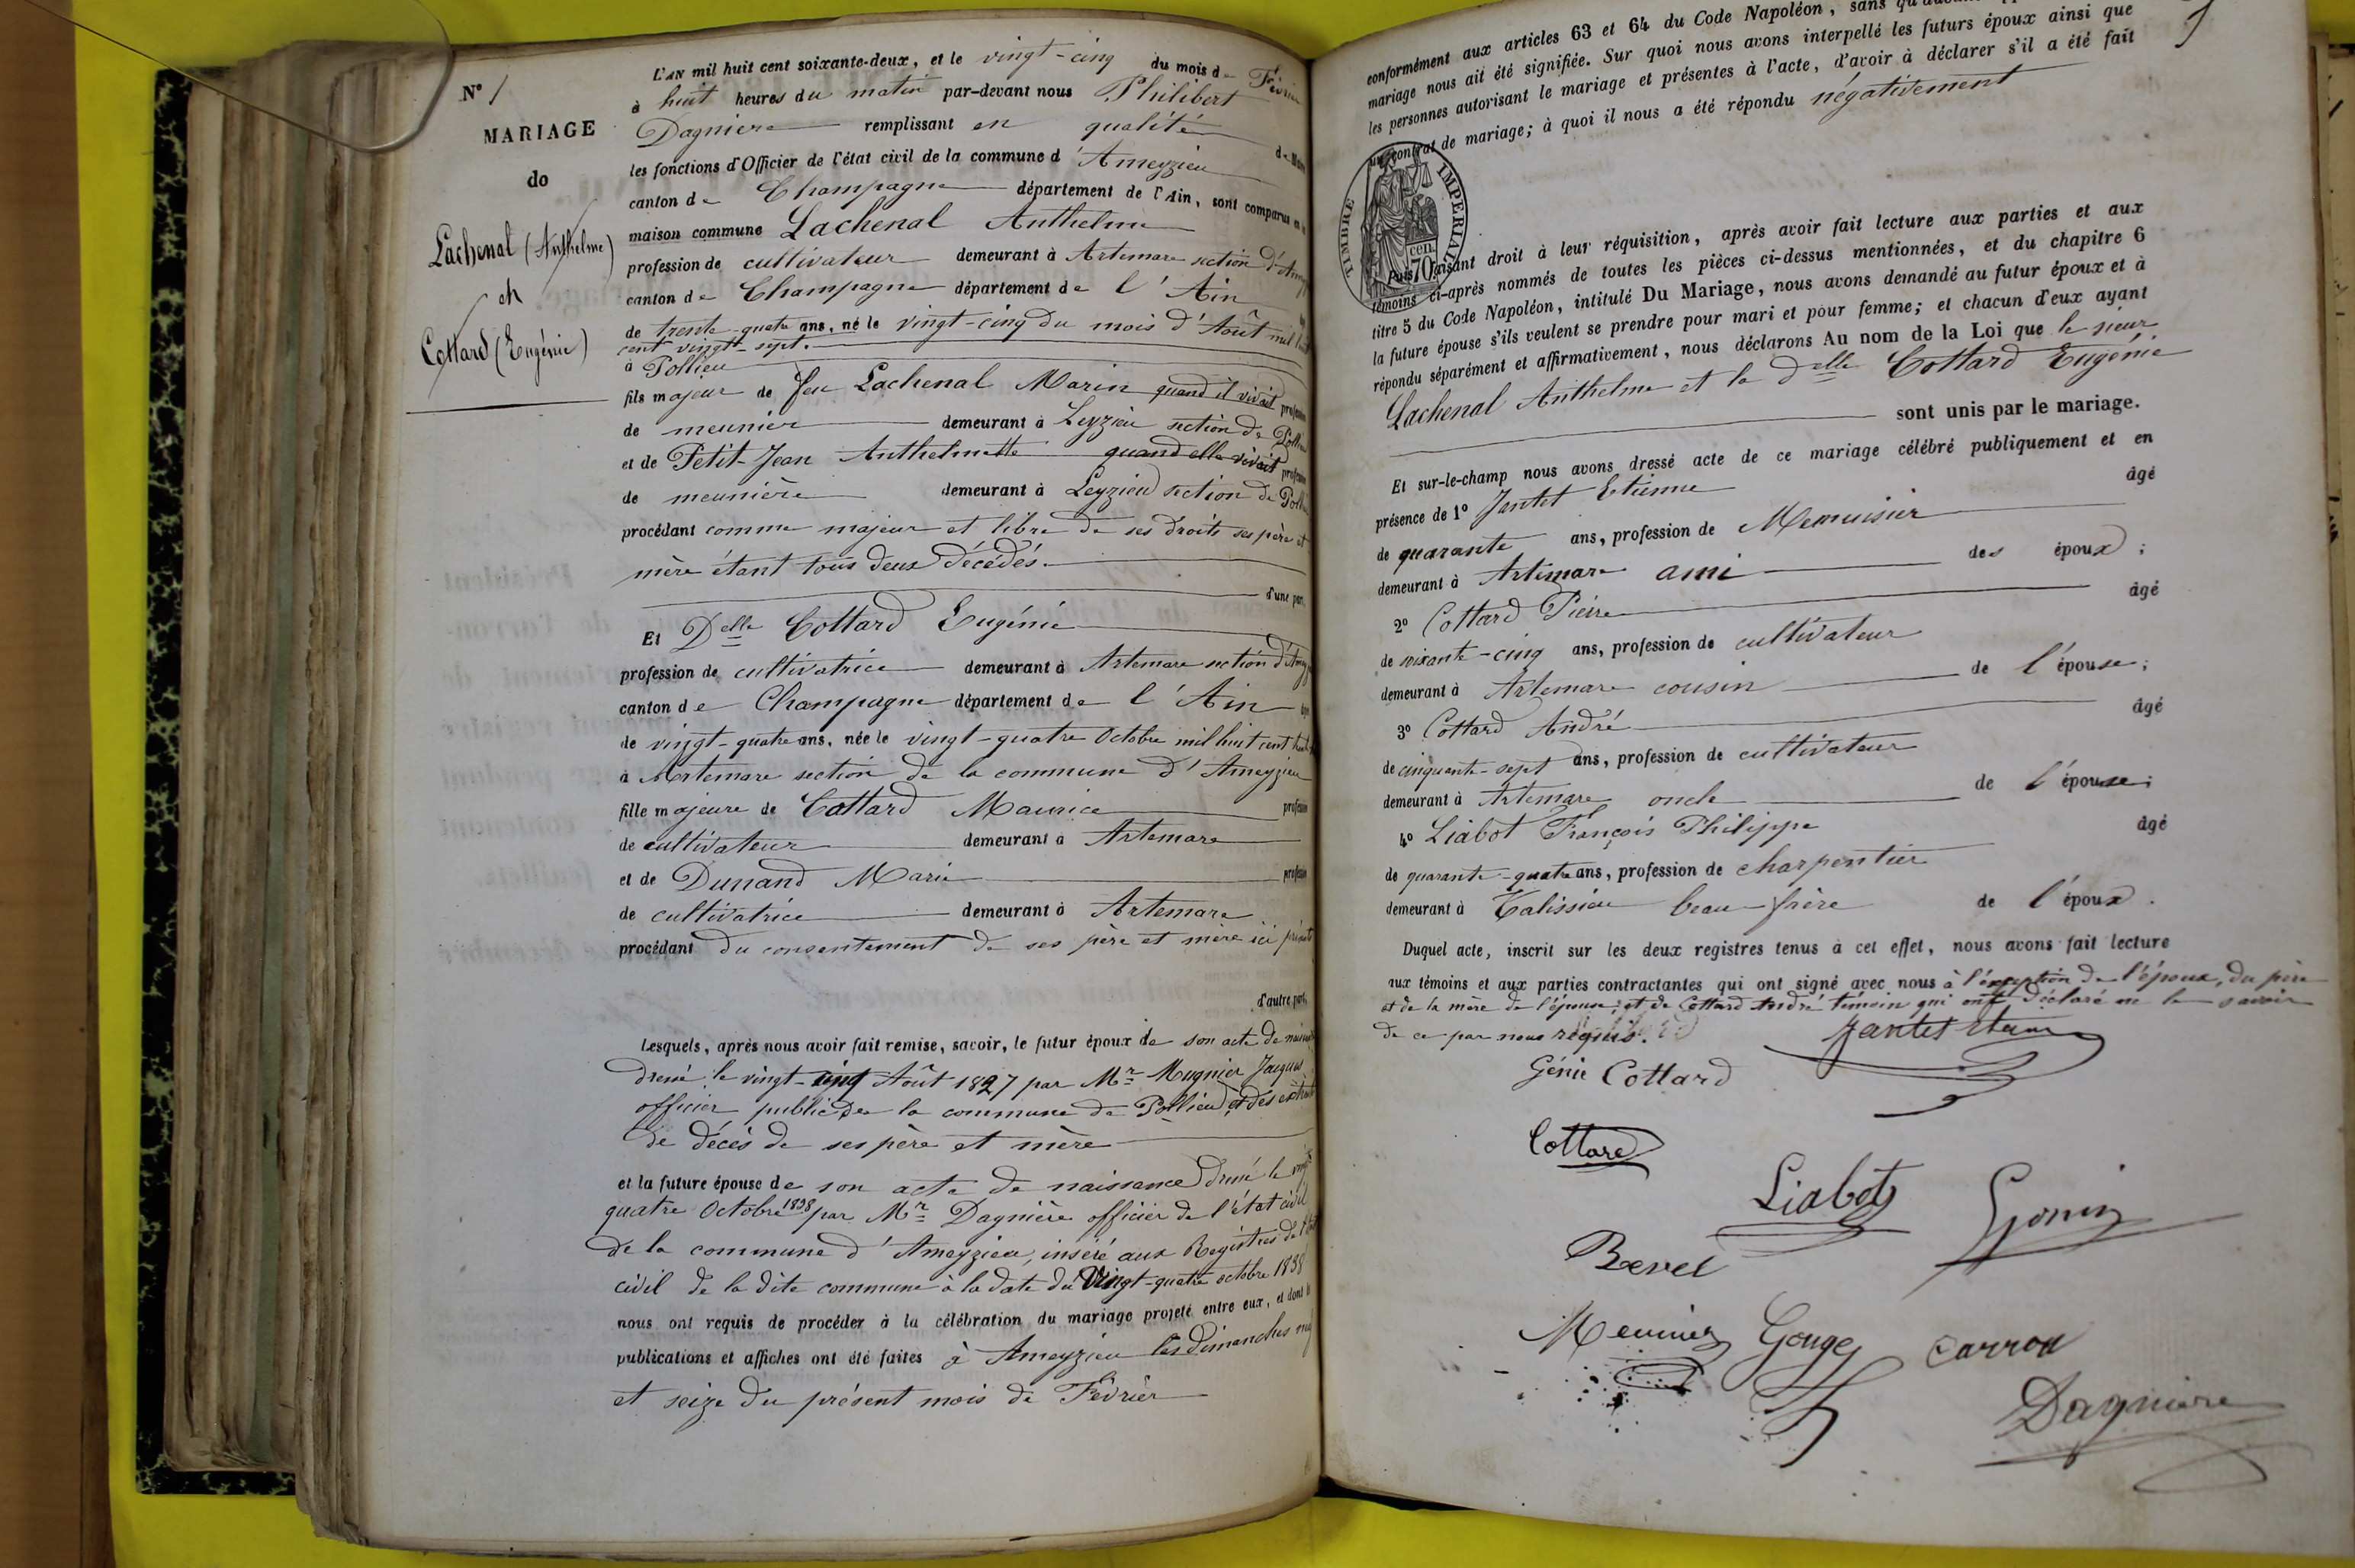 Nº 1
MARIAGE
do
Lachenal (Anthelme)
et
Cottard (Eugénie)
L'AN mil huit cent soixante-deux, et le vingt-cinq du mois de Février
à huit heures du matin par-devant nous Philibert
Dagniere remplissant en qualité de Maire
les fonctions d'Officier de l'état civil de la commune d'Ameyzieu
canton de Champagne département de l'Ain, sont comparus en la
maison commune Lachenal Anthelme
profession de cultivateur demeurant à Artemare section d'Amey
canton de Champagne département de l'Ain
de trente-quatre ans, né le vingt-cinq du mois d'Août mil huit
cent vingt-sept.
à Pollieu
fils majeur de feu Lachenal Marin quand il vivait profession
de meunier demeurant à Leyzieu section de Pollieu
et de Petit-Jean Anthelmette quand elle vivait profession
de meunière demeurant à Leyzieu section de Pollieu
procédant comme majeur et libre de ses droits ses père et
mère étant tous deux décédés.
d'une part,
Et Delle Cottard Eugénie
profession de cultivatrice demeurant à Artemare section d'Amey
canton de Champagne département de l'Ain
de vingt-quatre ans, née le vingt-quatre Octobre mil huit cent trente
à Artemare section de la commune d'Ameyzieu
fille majeure de Cottard Maurice profession
de cultivateur demeurant à Artemare
et de Dunand Marie profession
de cultivatrice demeurant à Artemare
procédant du consentement de ses père et mère ici présents
d'autre part,
Lesquels, après nous avoir fait remise, savoir, le futur époux de son acte de naissance
dressé le vingt-cinq Août 1827 par Mr Mugnier Jacques
officier public de la commune de Pollieu, et des extraits
de décès de ses père et mère
et la future épouse de son acte de naissance dressé le vingt
quatre Octobre 1838 par Mr Dagnière officier de l'état civil
de la commune d'Ameyzieu, inséré aux Registres de l'état
civil de la dite commune à la date du Vingt-quatre octobre 1838
nous ont requis de procéder à la célébration du mariage projeté entre eux, et dont les
publications et affiches ont été faites à Ameyzieu les dimanches neuf
et seize du présent mois de Février
conformément aux articles 63 et 64 du Code Napoléon, sans qu'aucune
mariage nous ait été signifiée. Sur quoi nous avons interpellé les futurs époux ainsi que
les personnes autorisant le mariage et présentes à l'acte, d'avoir à déclarer s'il a été fait
un contrat de mariage; à quoi il nous a été répondu négativement
TIMBRE IMPERIAL
70 cen.
Puis, faisant droit à leur réquisition, après avoir fait lecture aux parties et aux
témoins ci-après nommés de toutes les pièces ci-dessus mentionnées, et du chapitre 6
titre 5 du Code Napoléon, intitulé Du Mariage, nous avons demandé au futur époux et à
la future épouse s'ils veulent se prendre pour mari et pour femme; et chacun d'eux ayant
répondu séparément et affirmativement, nous déclarons Au nom de la Loi que le sieur
Lachenal Anthelme et la Delle Cottard Eugénie
sont unis par le mariage.
Et sur-le-champ nous avons dressé acte de ce mariage célébré publiquement et en
présence de 1º Jantet Etienne âgé
de quarante ans, profession de Menuisier
demeurant à Artemare ami des époux;
2º Cottard Pierre âgé
de soixante-cinq ans, profession de cultivateur
demeurant à Artemare cousin de l'épouse;
3º Cottard André âgé
de cinquante-sept ans, profession de cultivateur
demeurant à Artemare oncle de l'épouse;
4º Liabot François Philippe âgé
de quarante-quatre ans, profession de charpentier
demeurant à Talissieu beau-frère de l'époux.
Duquel acte, inscrit sur les deux registres tenus à cet effet, nous avons fait lecture
aux témoins et aux parties contractantes qui ont signé avec nous à l'exception de l'époux, du père
et de la mère de l'épouse, et de Cottard André témoin qui ont déclaré ne le savoir
de ce par nous requis.
Jantet Etienne
Génie Cottard
Cottard
Liabot
Gonin
Bevel
Meunier
Gouge
Carron
Dagniere